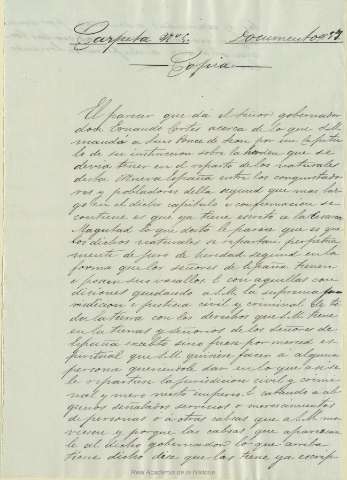 Carpeta Nº 5. Documento 57
Copia
El parecer que da el señor gobernador
don Ernando Cortes acerca de lo que S.M.
manda a Luis Ponce de Leon por un capitu-
lo de su instruccion sobre la hórden que se
devria tener en el reparto de los naturales
desta Nueva España entre los conquistado-
res y pobladores della segund que mas lar-
go en el dicho capitulo e confirmacion se
contiene es que ya tiene escrito a la Cesarea
Magestad lo que desto le parece que es que
los dichos naturales se repartan perpetua-
mente de juro de heredad segund en la
forma que los señores de España tienen
e poseen sus vasallos e con aquellas con-
diciones quedando a S.M. la suprema
juridicion e justicia civil y criminal de to-
da la tierra con los derechos que S.M. tiene
en las tierras y señorios de los señores de
España excebto sino fuese por merced es-
piritual que S.M. quisiese facer a alguna
persona queriendole dar en lo que ansi se
le repartiese la juridicion civil y crimi-
nal y mero mixto imperio catando a al-
gunos señalados servicios o merecimientos
de personas o a otras cabsas que a S.M. mo-
viesen y porque las cabsas que a parecer
le al dicho gobernador lo que arriba
tiene dicho dice que las tiene ya escrip-
Real Academia de la Historia